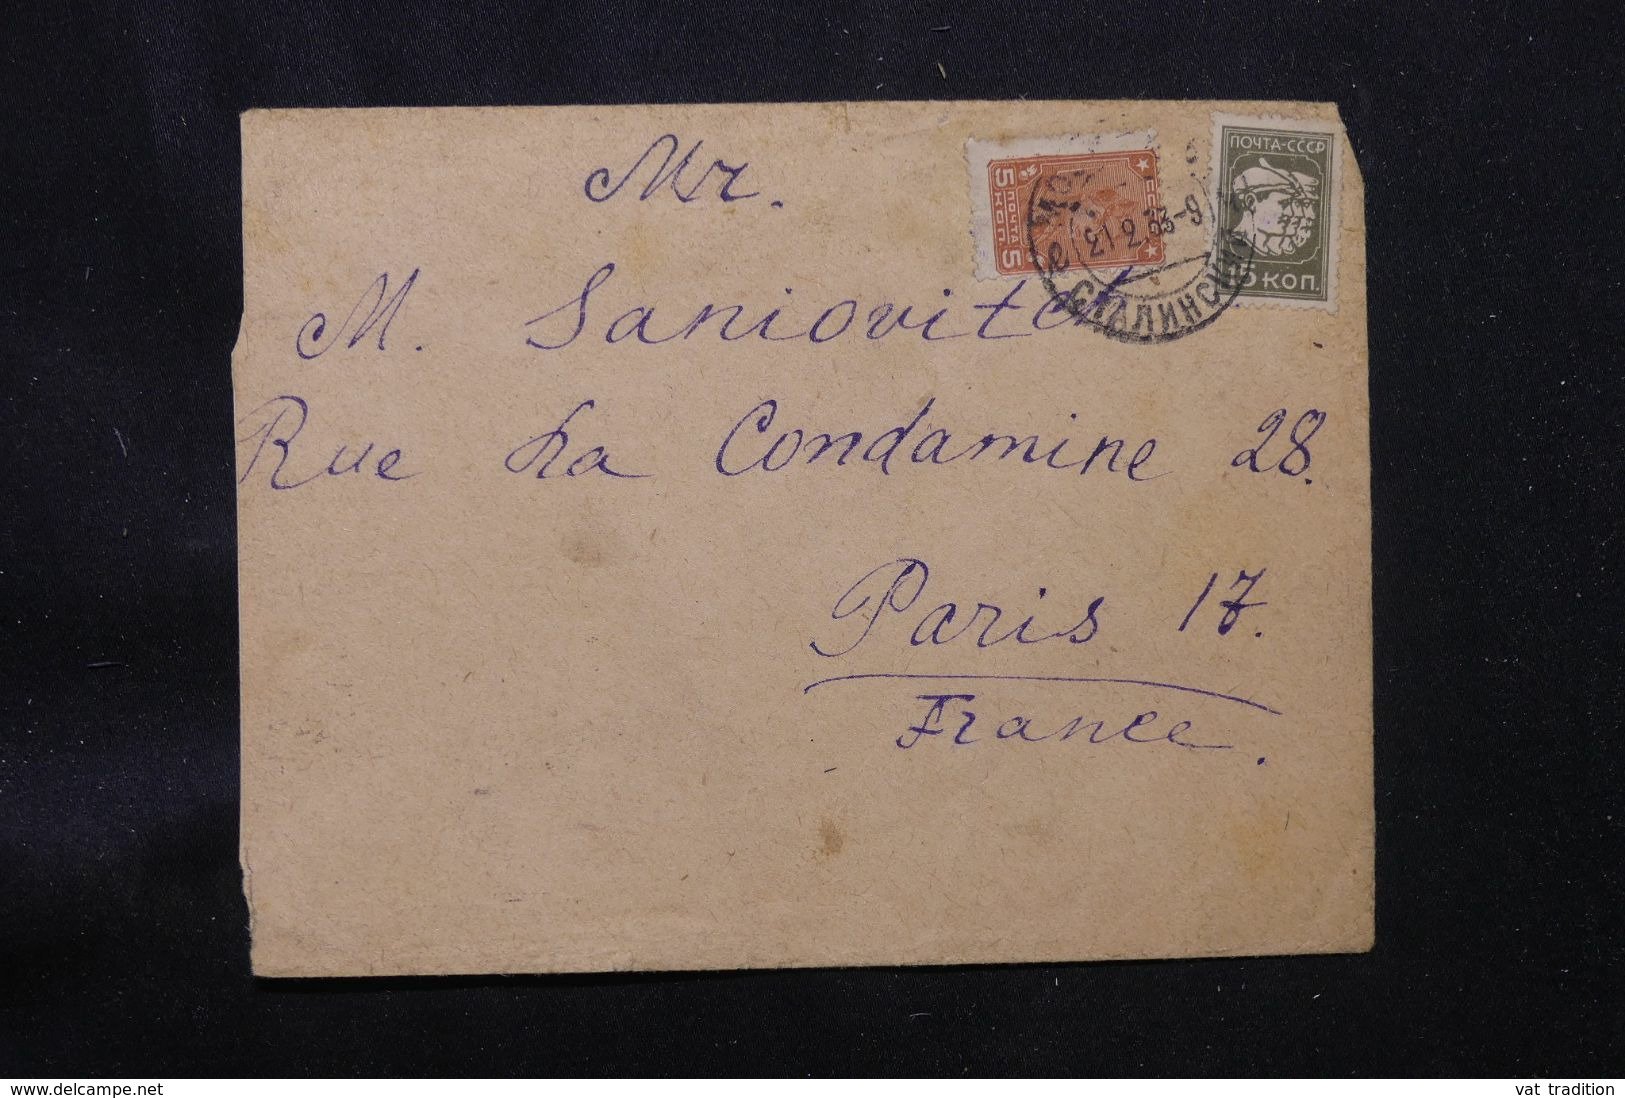 Mr.
M. Saniovitch
Rue La Condamine 28.
Paris 17.
France.
5 ПОЧТА 5
КОП
ПОЧТА-СССР
15 КОП.
21.2.33-9
www.delcampe.net
vat tradition